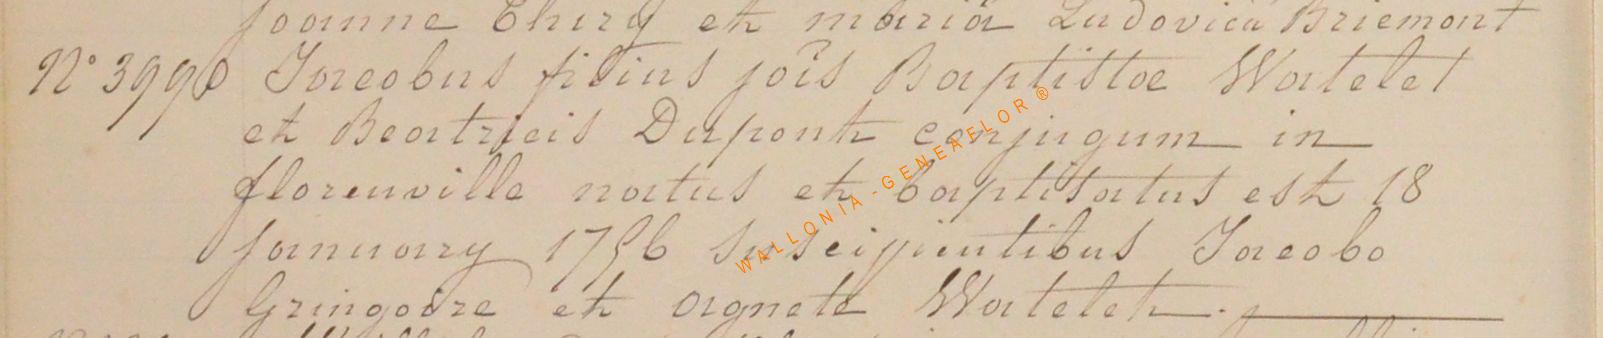 Joanne Thiry et mariâ Ludovicâ Briemont
N° 3990 Jacobus filius jois Baptistae Watelet
et Beatricis Dupont conjugum in
florenville natus et baptisatus est 18
january 1756 Suscipientibus Jacobo
Gringoire et agnete Watelet.
WALLONIA-GENEAFLOR®